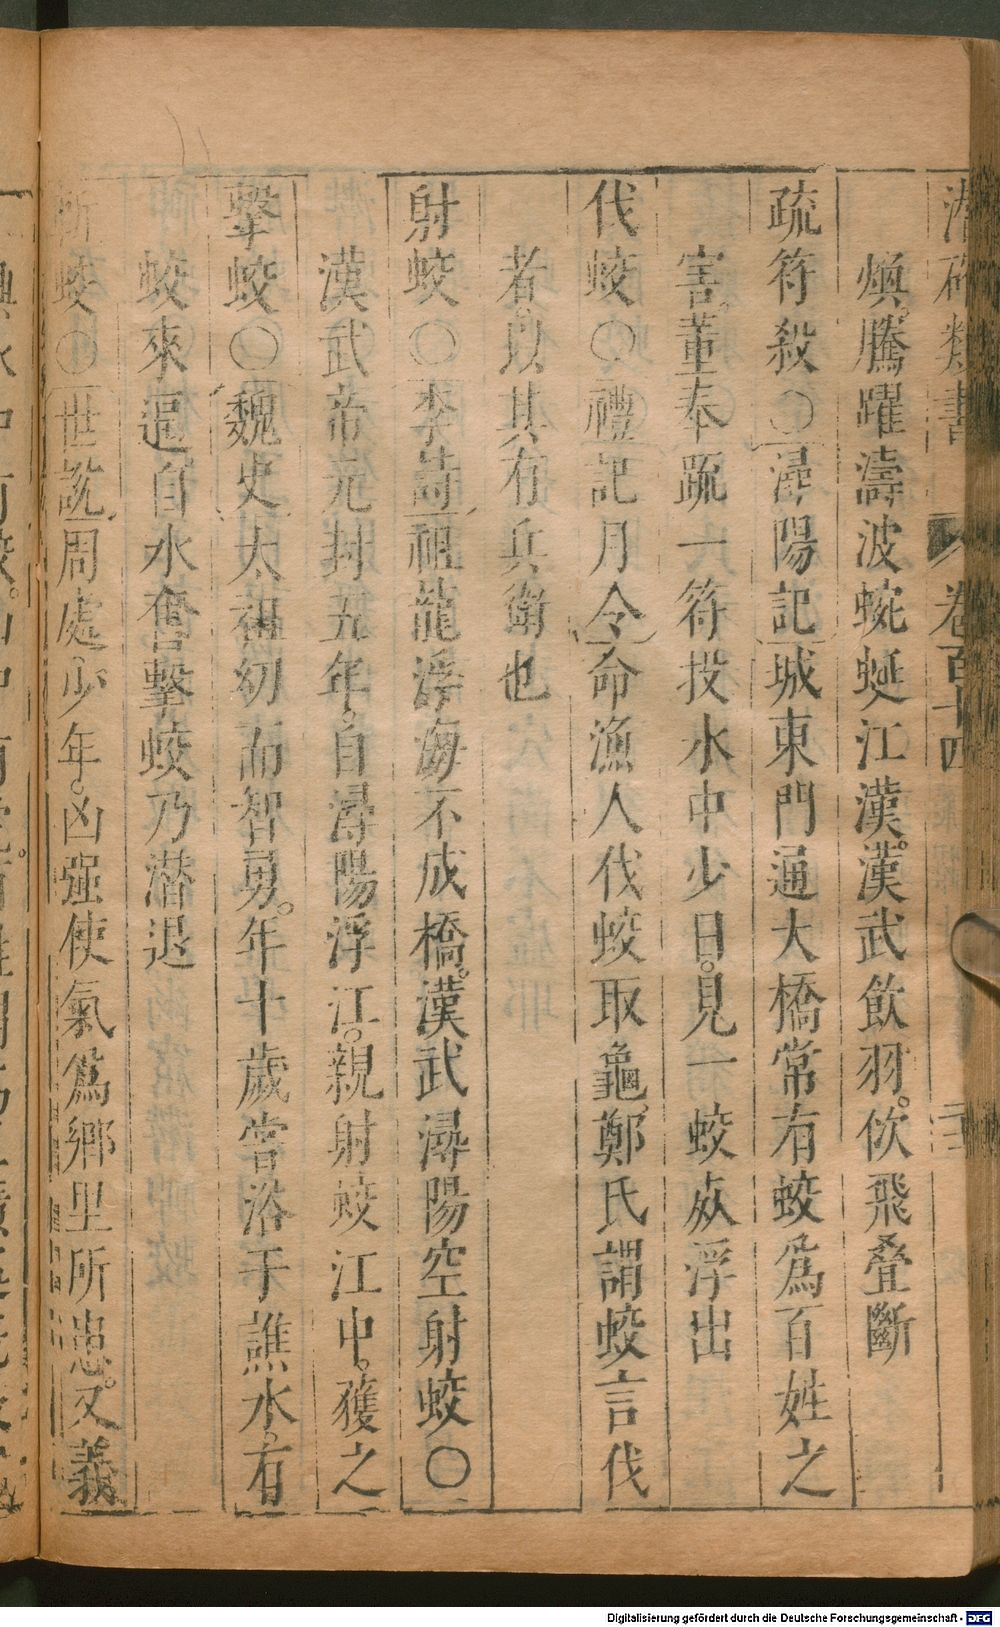 煥。騰躍濤波蜿蜒江漢。漢武飲羽。佽飛疊斷
疏符殺〇潯陽記城東門通大橋常有蛟爲百姓之
害。董奉疏一符投水中少日。見一蛟死浮出
伐蛟〇禮記月令命漁人伐蛟取龜鄭氏謂蛟言伐
者。以其有兵衛也
射蛟〇李詩祖龍浮海不成橋。漢武潯陽空射蛟〇
漢武帝元封五年。自潯陽浮江。親射蛟江中。獲之
擊蛟〇魏史太祖幼而智勇。年十歲嘗浴于譙水。有
蛟來逼自水奮擊蛟乃潛退
斬蛟〇世說周處少年。凶強使氣爲鄉里所患。又義
類書 卷百十四
Digitalisierung gefördert durch die Deutsche Forschungsgemeinschaft - DFG